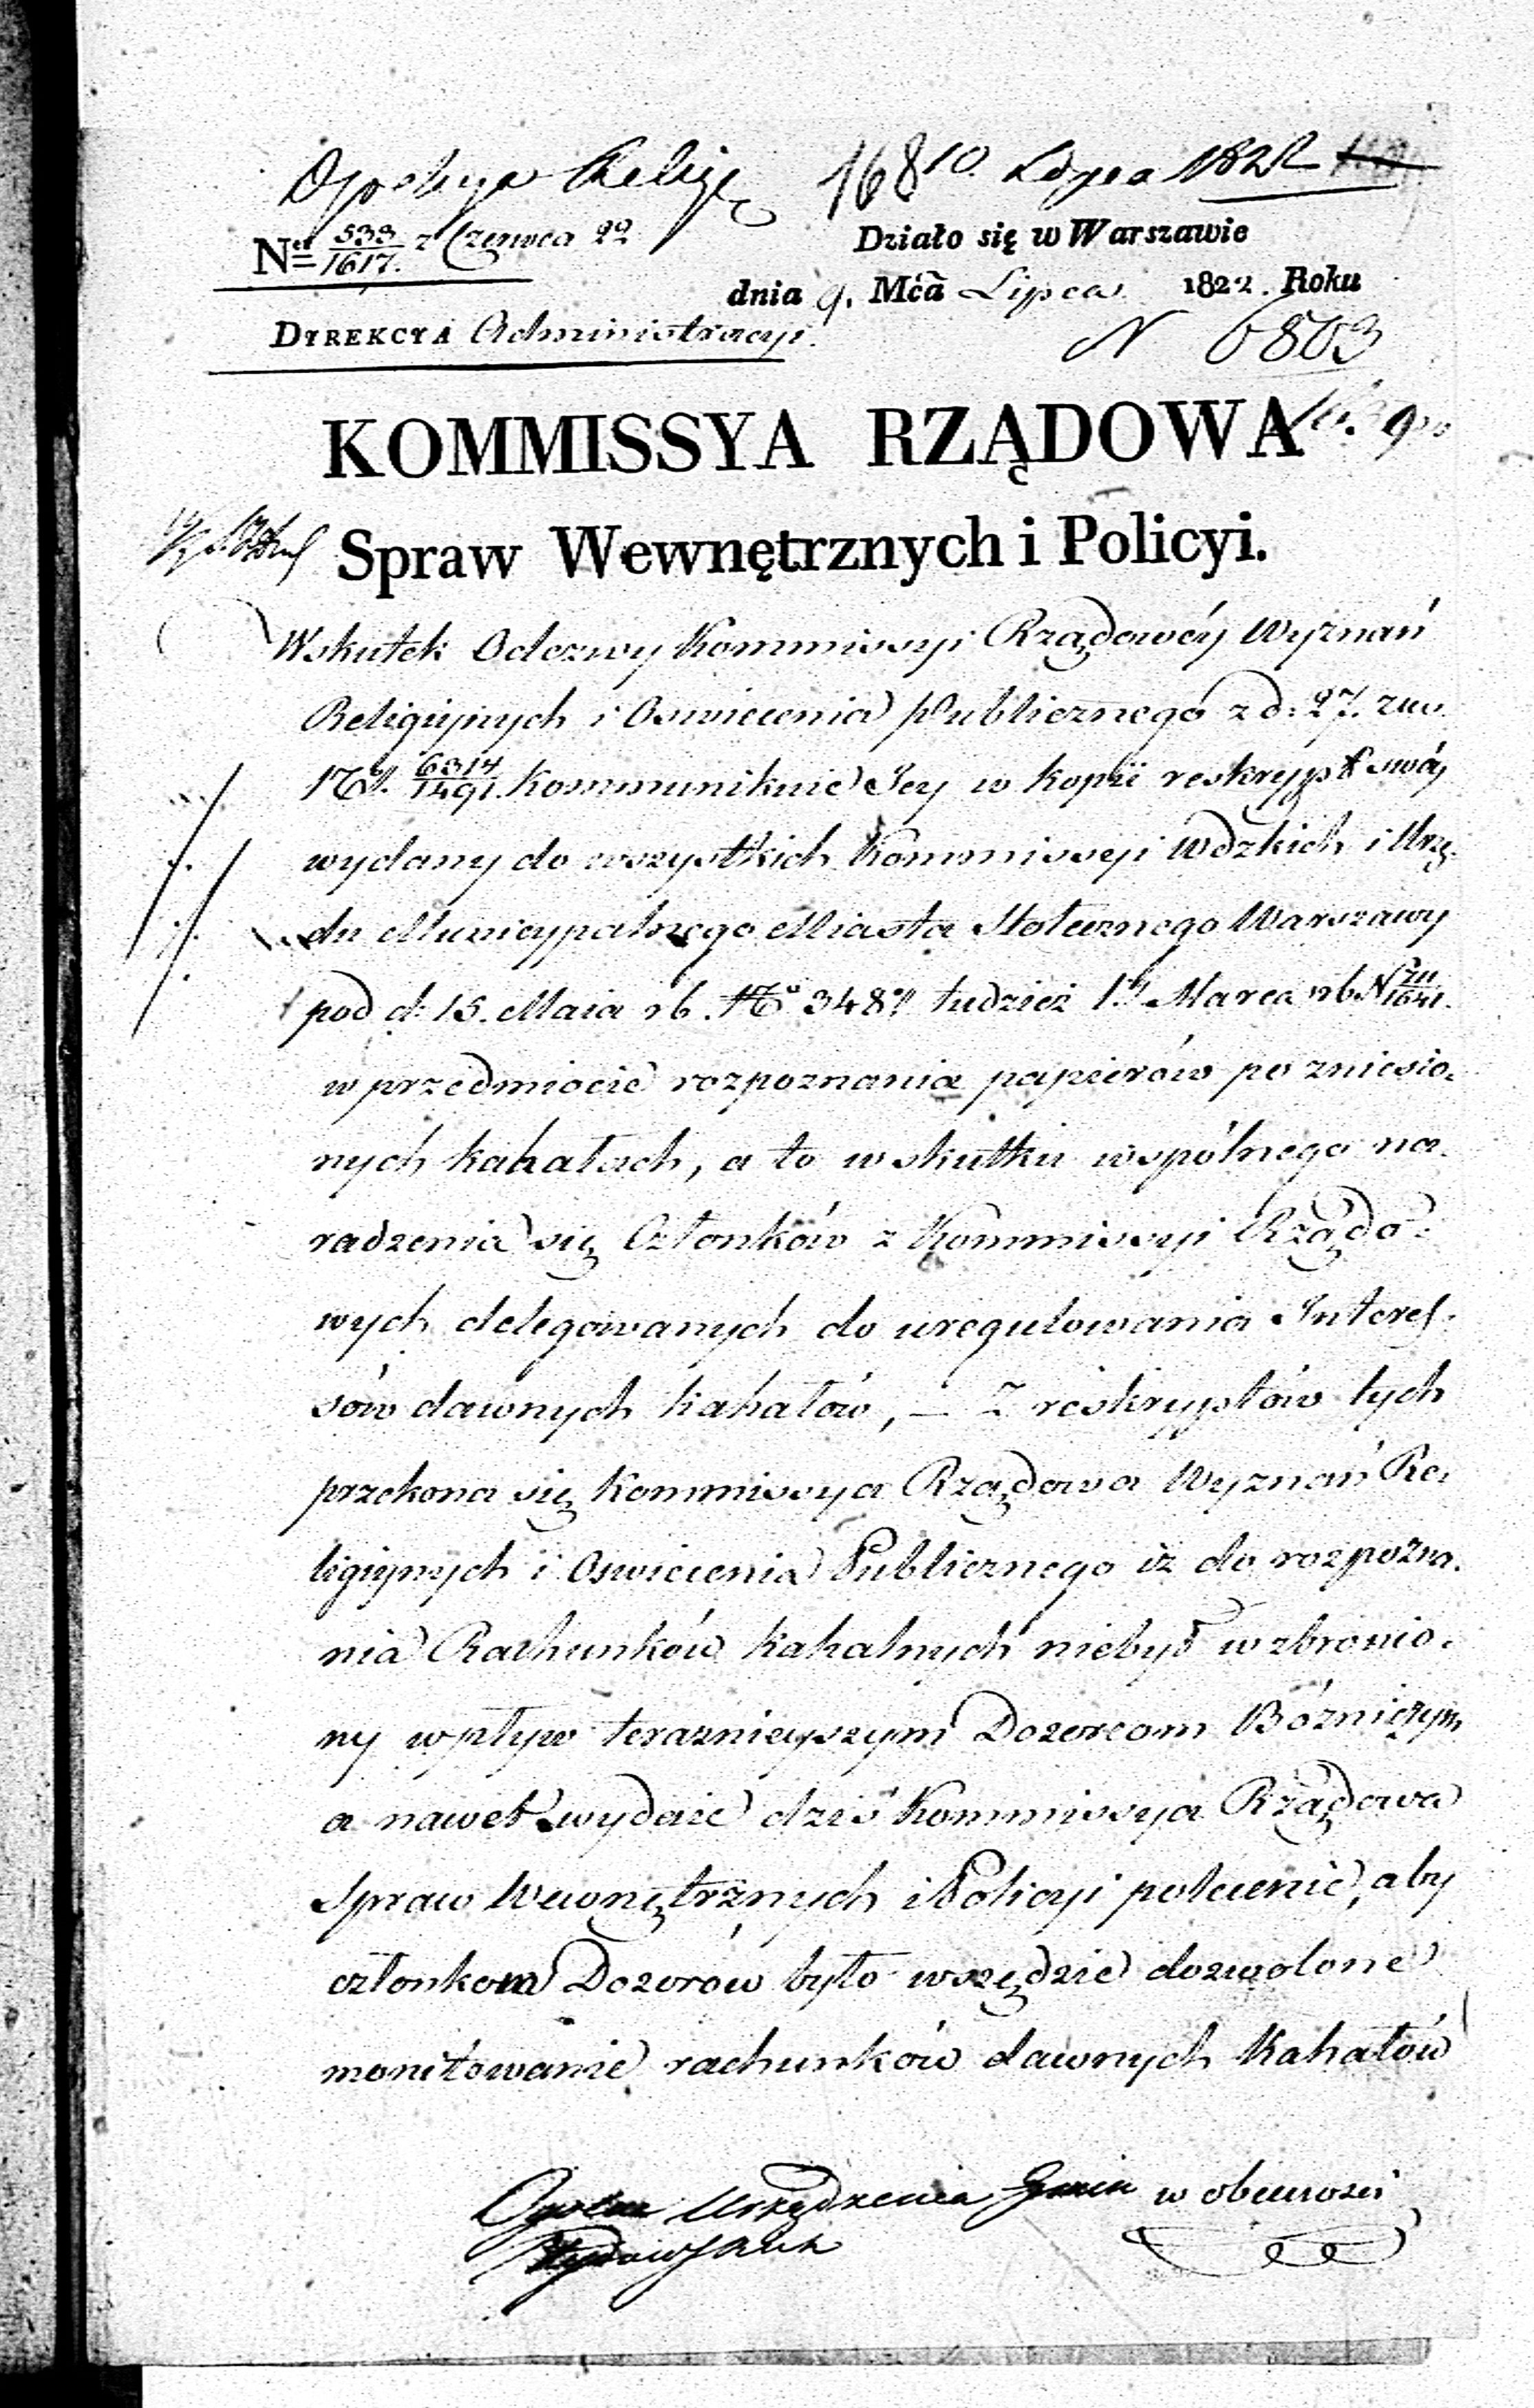 168 10. Lipca 1822
Nro 533/1617. z Czerwca 22
Działo się w Warszawie
dnia 9. Mća Lipca 1822. Roku
DYREKCYA Administracyi.
N 6803
KOMMISSYA RZĄDOWA
Spraw Wewnętrznych i Policyi.
Wskutek Odezwy Kommissyi Rządowéy Wyznań
Religijnych i Oswiecenia Publicznego z d: 27. z m.
6314/1491. kommunikuie Jey w kopii reskrypt swóy
wydany do wszystkich Kommissyi Wdzkich i Urzę,
du Municypalnego Miasta Stołecznego Warszawy
pod d: 15. Maia rb. No 3487 tudzież 1. Marca rb N
w przedmiocie rozpoznania papierów po zniesio,
nych kahałach, a to wskutku wspólnego na,
radzenia się Członków z Kommissyi Rządo,
wych delegowanych do uregulowania Interes,
sów dawnych kahałów, – Z reskryptów tych
przekona się Kommissya Rządowa Wyznań Re,
ligijnych i Oswiecenia Publicznego iż do rozpozna,
nia Rachunków kahalnych niebył wzbronio,
ny wpływ teraznieyszym Dozorcom Bóżniczym
a nawet wydaie dziś Kommissya Rządowa
Spraw Wewnętrznych i Policyi polecenie, aby
członkom Dozorów było wszędzie dozwolone
monitowanie rachunków dawnych Kahałów
w obecności
Urządzenia Gmin